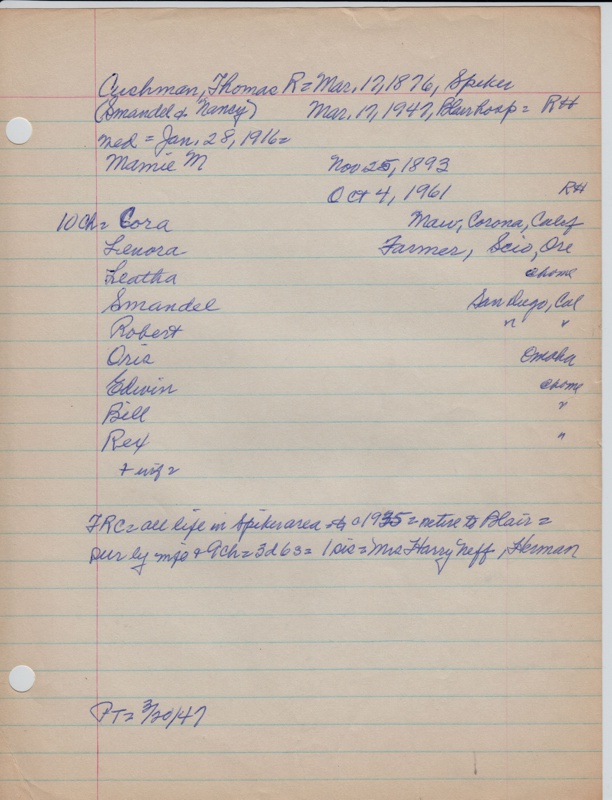 Cushman, Thomas R = Mar. 17, 1876, Spiker
(Smandel & Nancy) Mar. 17, 1947, Blair hosp = RH
med = Jan. 28, 1916 =
Mamie M Nov 25, 1893
Oct 4, 1961 RH
10 ch = Cora Maw, Corona, Calif
Lenora Farmer, Scio, Ore
Leatha @home
Smandel San Diego, Cal
Robert " "
Oris Omaha
Edwin @home
Bill "
Rex "
+ inf =
TRC = all life in Spiker area c1935 = retire to Blair =
Sur by wife + 9 ch = 3d 6s = 1 sis = Mrs Harry Neff, Herman
PT = 3/20/47